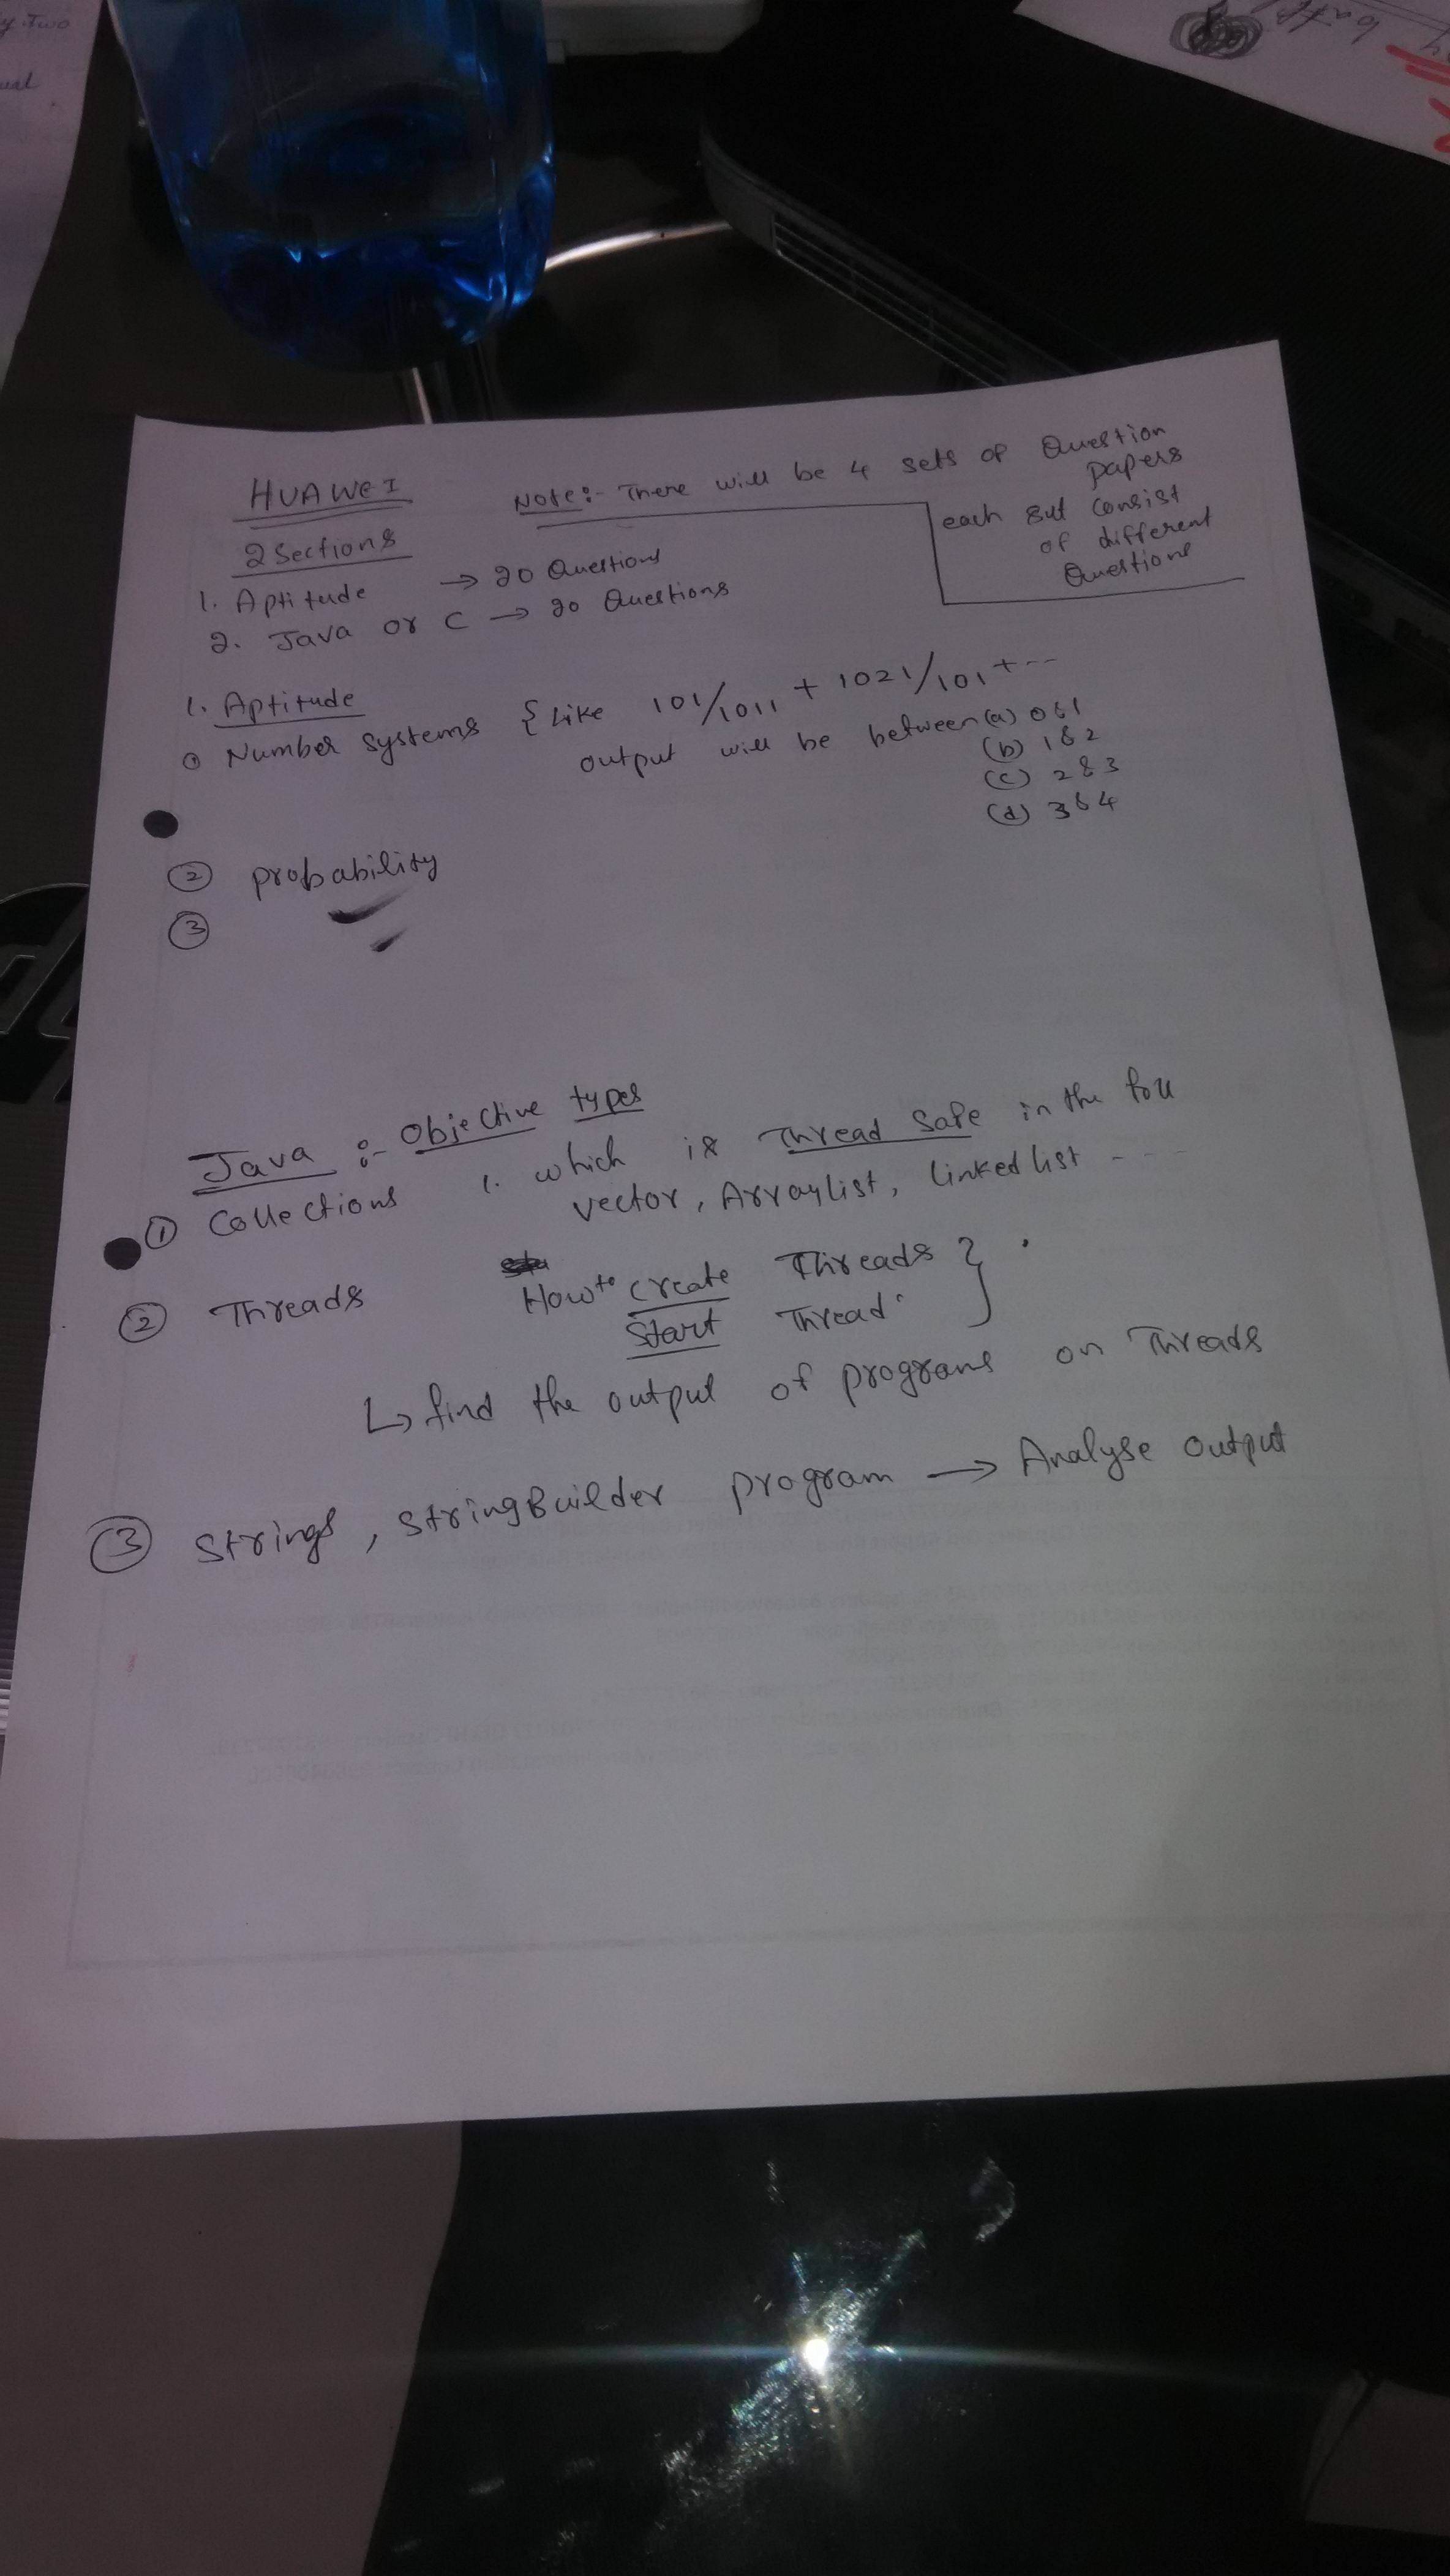 y Two
HUAWEI
Note:- There will be 4 sets of Question
papers
each But consist
of different
Questions
2 Sections
1. Aptitude → 20 Questions
2. Java or C → 20 Questions
1. Aptitude
① Number systems { Like 101/1011 + 1021/101 + ---
output will be between (a) 0&1
(b) 1&2
(c) 2&3
(d) 3&4
② probability
③
Java :- Objective types
① Collections 1. which is Thread Safe in the foll
vector, Arraylist, linkedlist ----
② Threads How to create Threads }
Start Thread
↳ find the output of programs on Threads
③ Strings, StringBuilder program → Analyse output